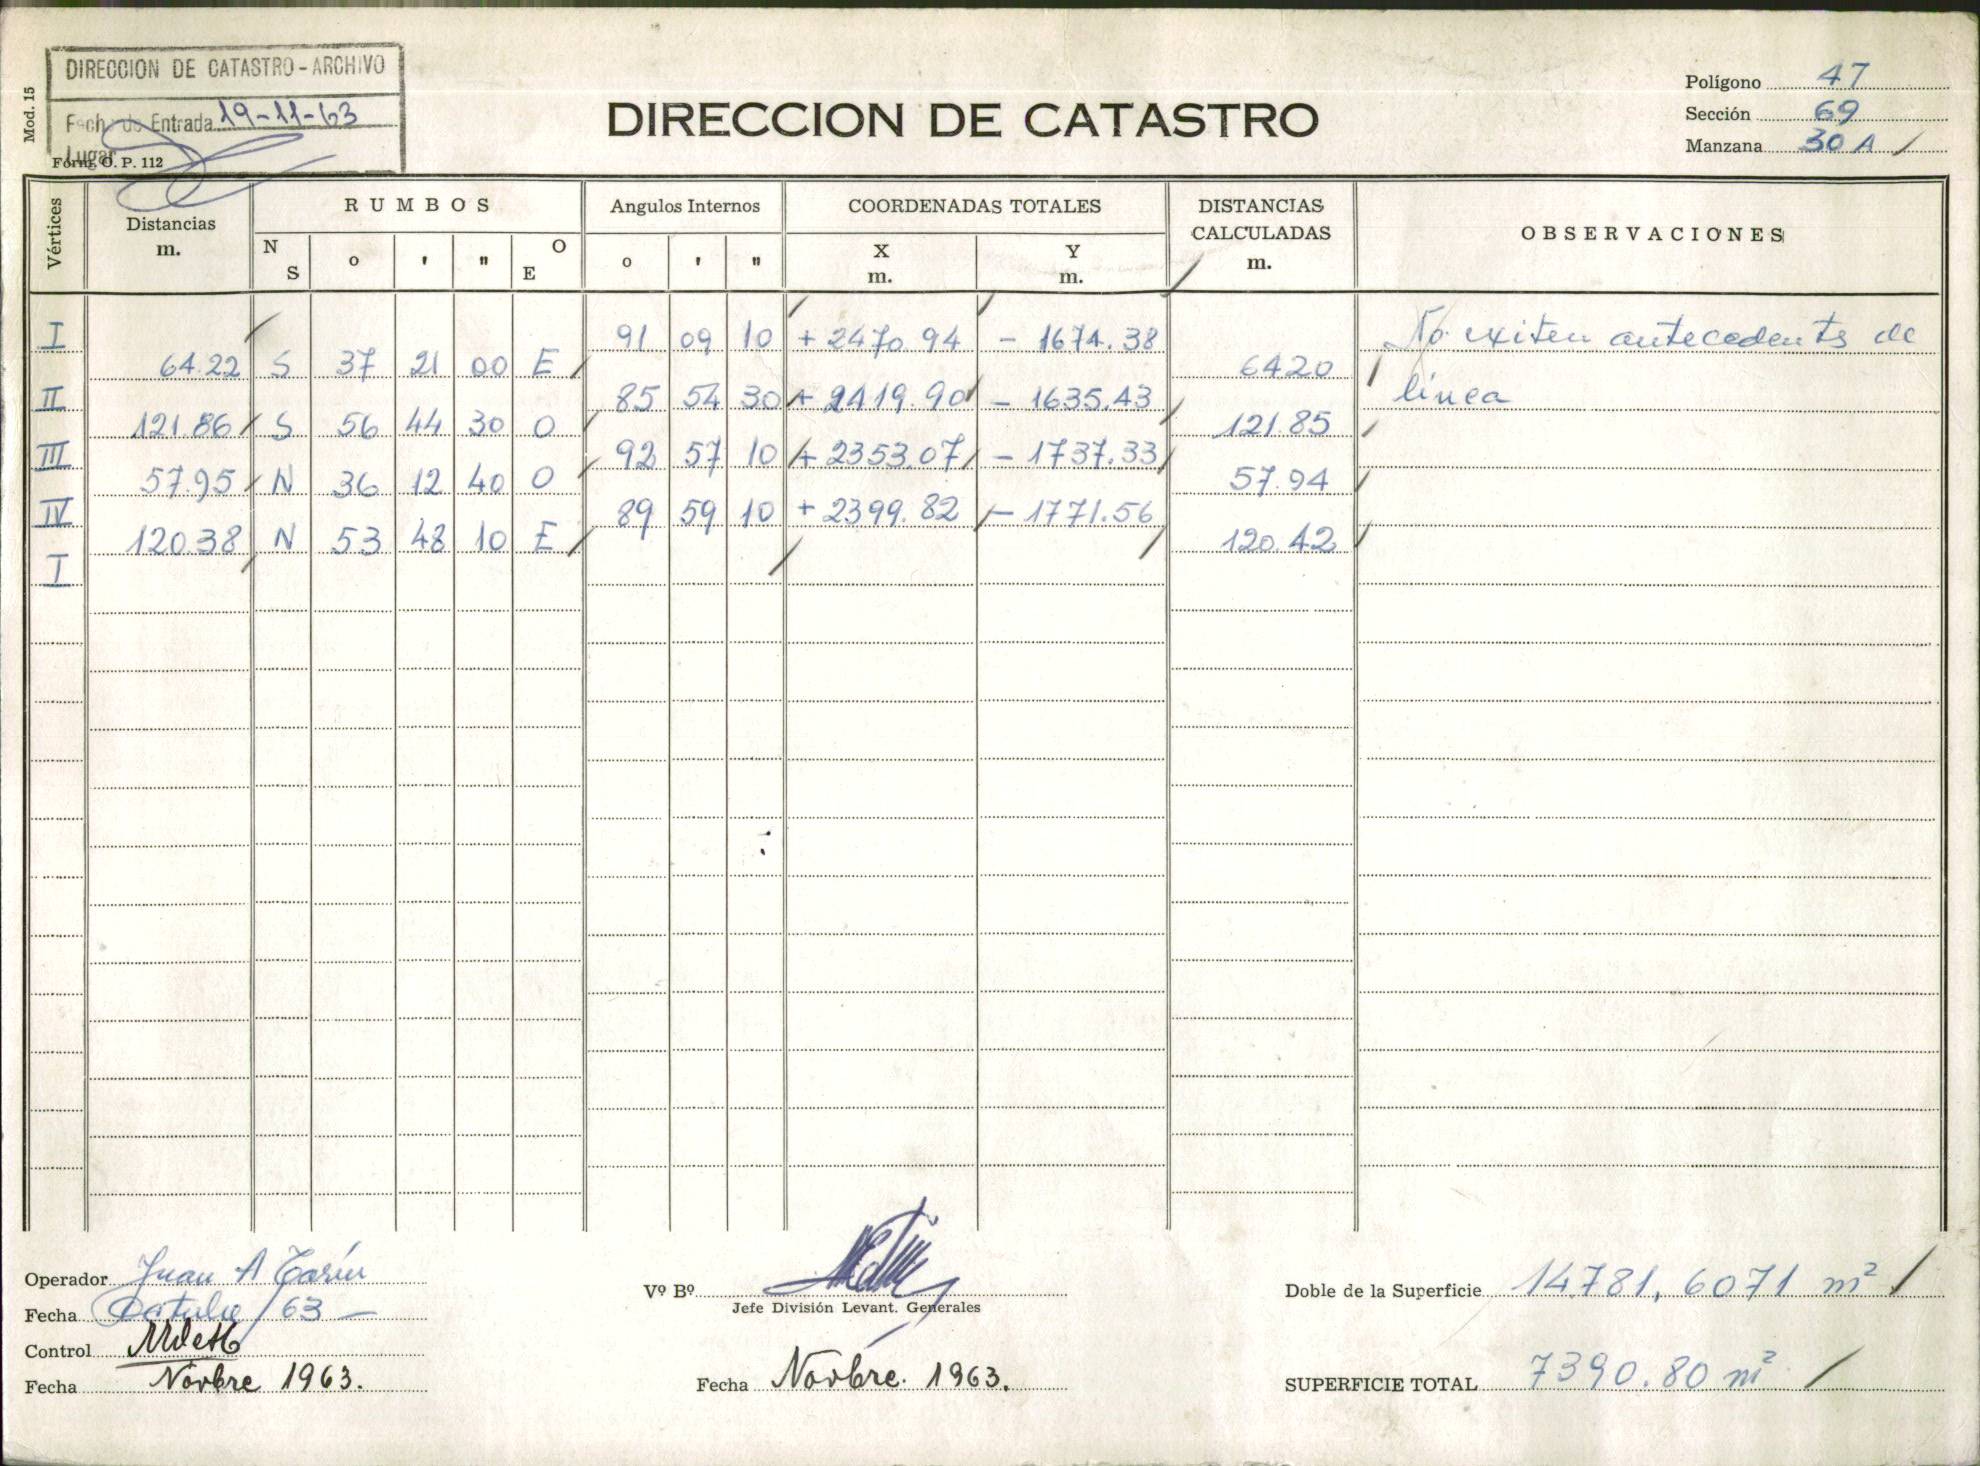 DIRECCION DE CATASTRO - ARCHIVO
Fecha de Entrada 19-11-63
Lugar
Mod. 15
Form. O. P. 112
DIRECCION DE CATASTRO
Polígono 47
Sección 69
Manzana 30 A /
Vértices
Distancias
m.
RUMBOS
N
S
o ' "
O
E
Angulos Internos
o ' "
COORDENADAS TOTALES
X
m.
Y
m.
DISTANCIAS
CALCULADAS
m.
OBSERVACIONES
I 91 09 10 + 2470.94 - 1674.38 No exiten antecedents de
64.22 S 37 21 00 E 6420
II 85 54 30 + 2419.90 - 1635.43 línea
121.86 S 56 44 30 O 121.85
III 92 57 10 + 2353.07 - 1737.33
57.95 N 36 12 40 O 57.94
IV 89 59 10 + 2399.82 - 1771.56
120.38 N 53 48 10 E 120.42
I
Operador Juan A Tarín
Fecha Octubre / 63
Control
Fecha Novbre 1963.
Vº Bº
Jefe División Levant. Generales
Fecha Novbre. 1963.
Doble de la Superficie 14.781,6071 m²
SUPERFICIE TOTAL 7390.80 m²